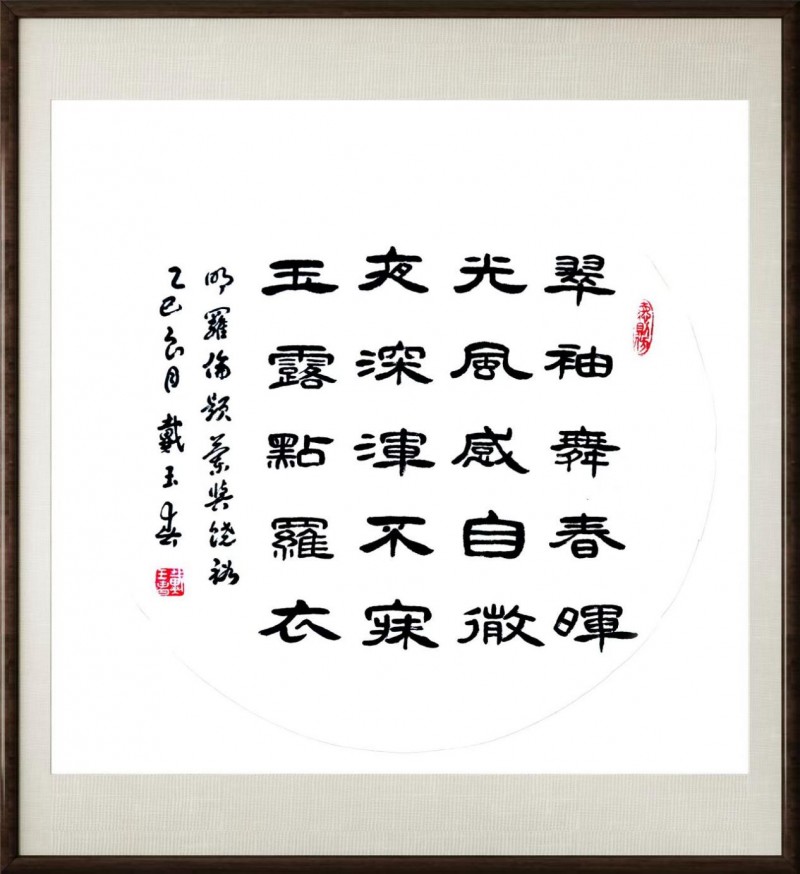 翠袖舞春暉
光風感自微
夜深渾不寐
玉露點羅衣
明羅倫題蘭與饒裕
乙巳月戴玉春